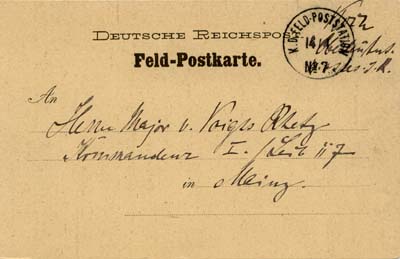 DEUTSCHE REICHSPO
Feld-Postkarte.
K.D. FELD-POSTSTATION
14
No 7
An
Herrn Major v. Voigts Rhetz
Kommandeur I. /Leib 117
in Mainz.